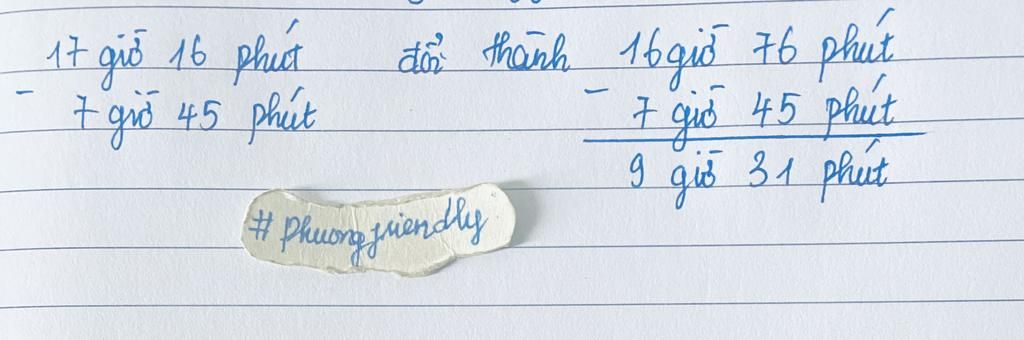 17 giờ 16 phút đổi thành 16 giờ 76 phút
- 7 giờ 45 phút - 7 giờ 45 phút
9 giờ 31 phút
# phuongfriendly